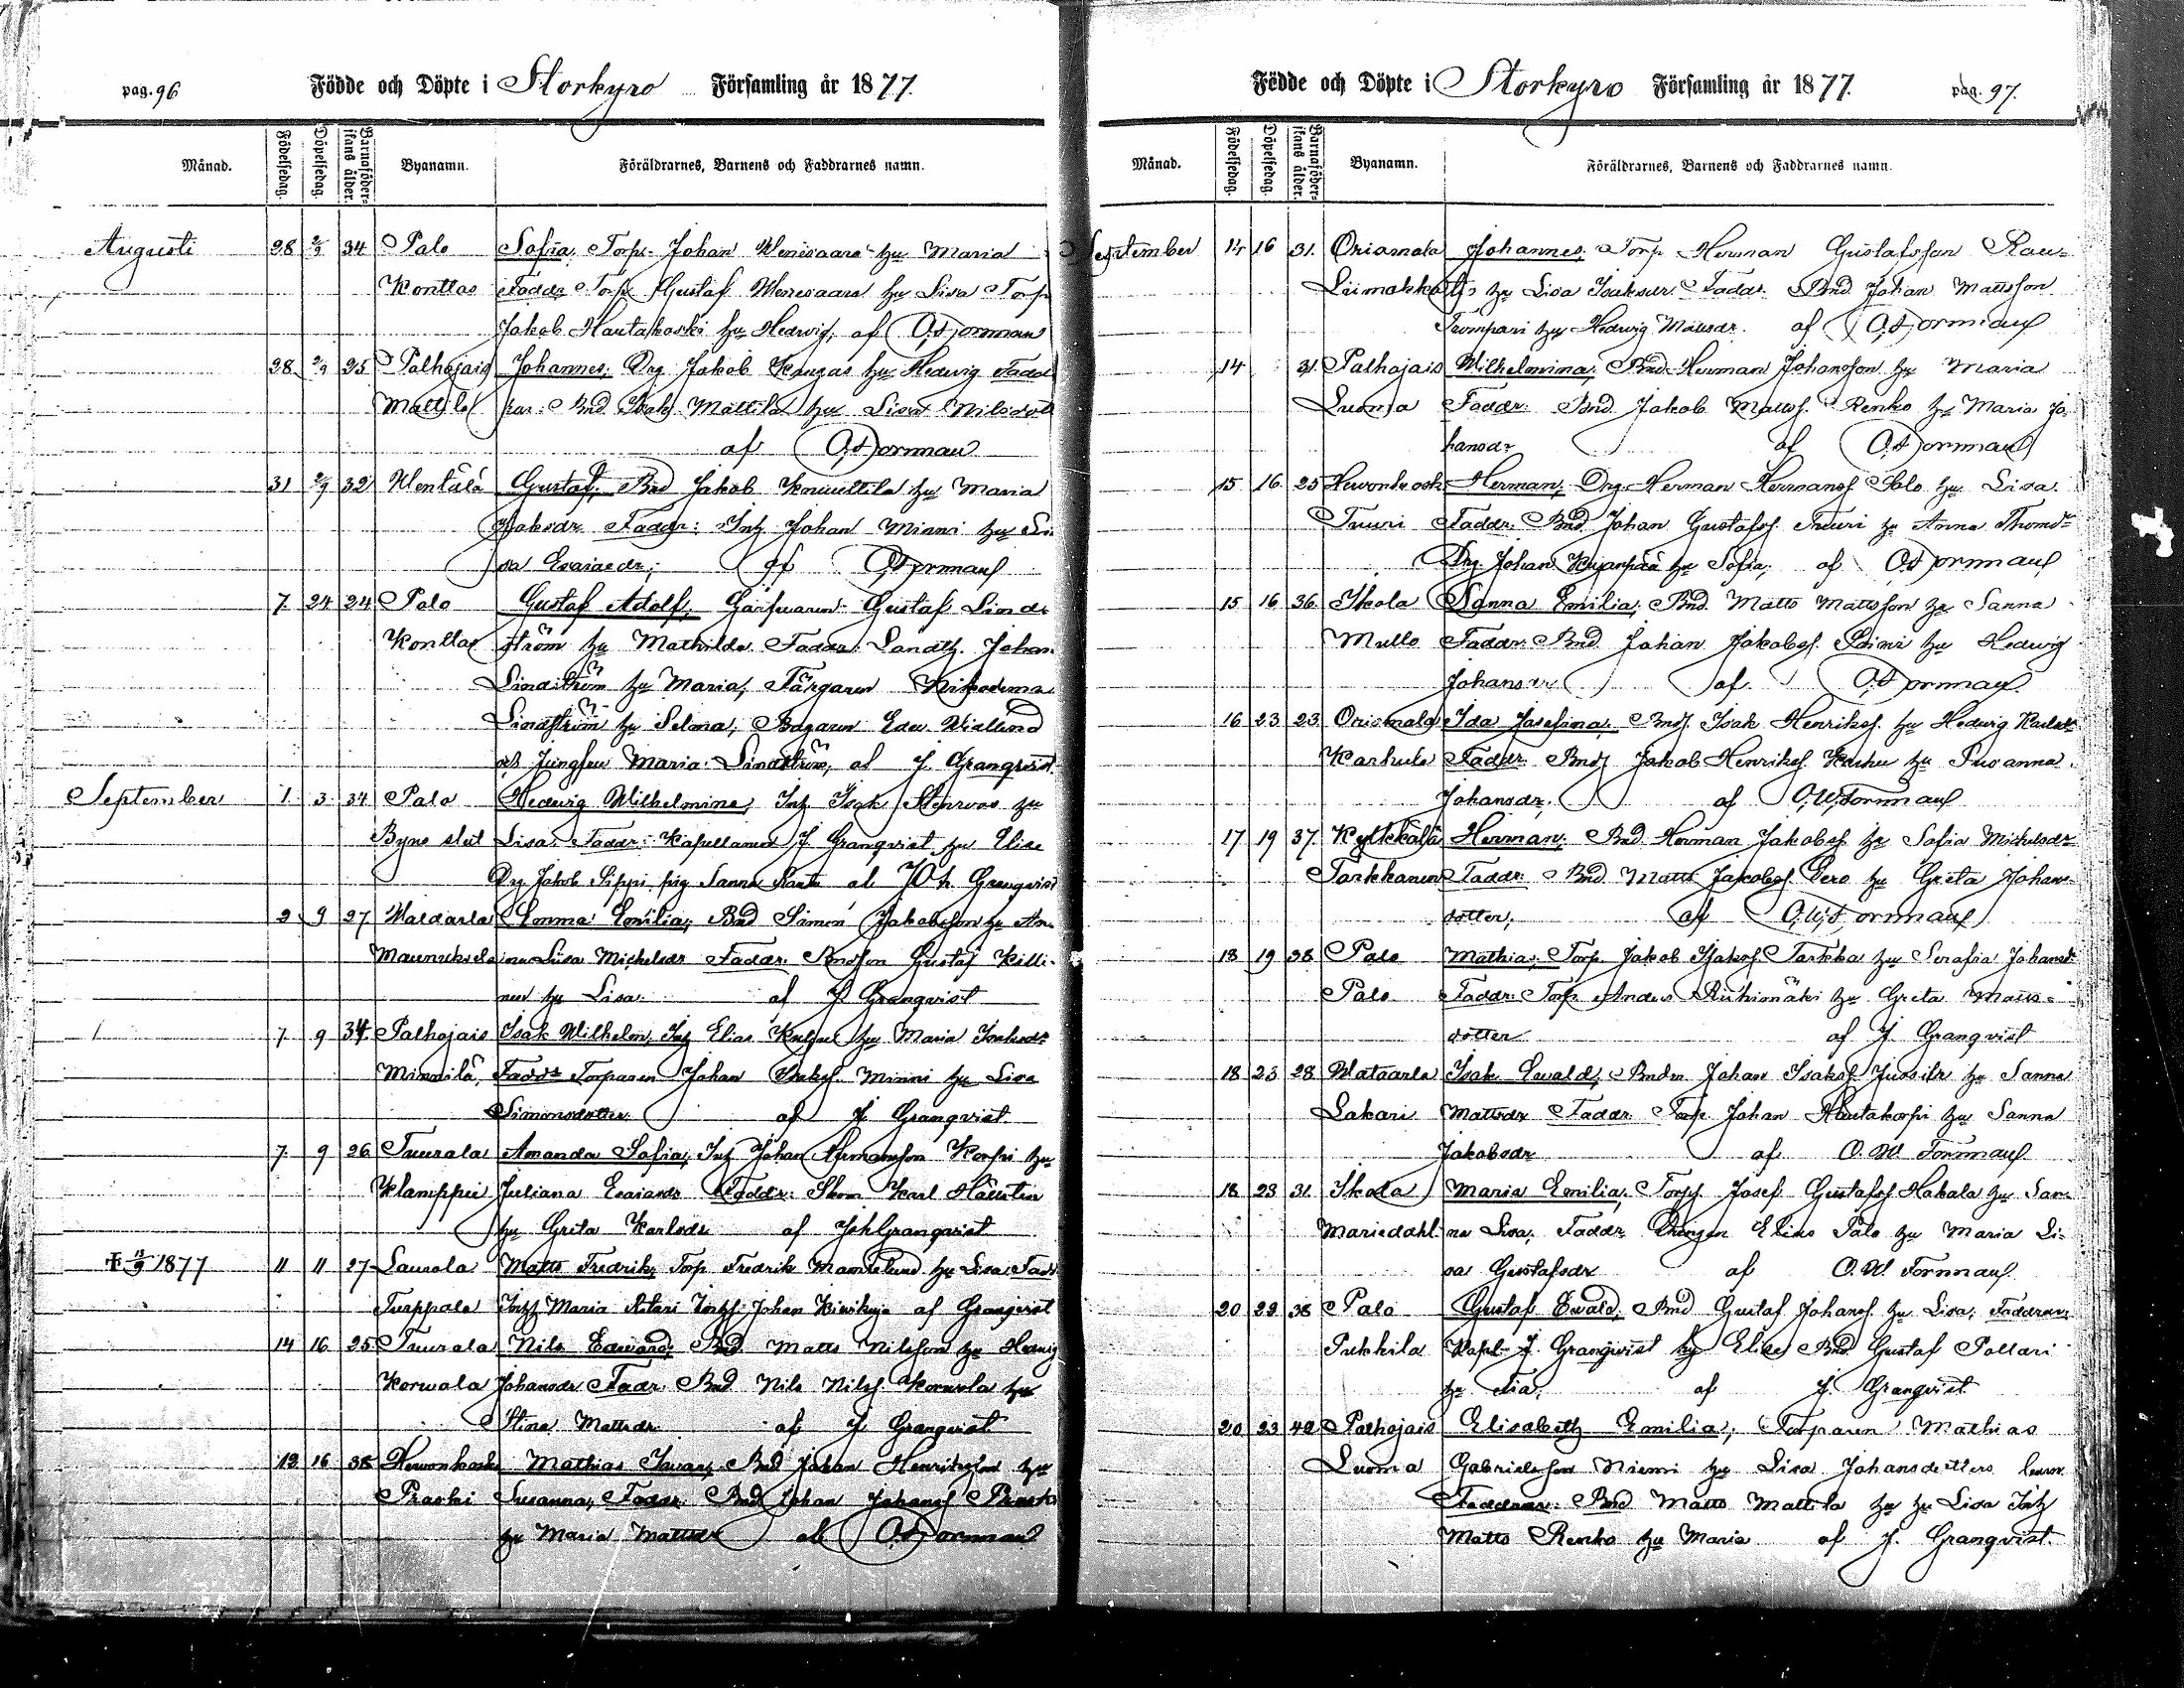 pag. 96
Födde och Döpte i Storkyro Församling år 1877.
Månad. Födelsedag. Döpelsedag. Barnaföderskans ålder. Byanamn. Föräldrarnes, Barnens och Faddrarnes namn.
Augusti 28 2/9 34 Palo Sofia, Torp. Johan Wenesaara hu Maria
Konttas Faddr Torp Gustaf Wenesaara hu Lisa Torp
Jakob Hautakoski hu Hedwig, af O. Formnau
28 2/9 25 Palhojais Johannes; Drg Jakob Kangas hu Hedwig Fadd
Mattila rar: Bnd Isak Mattila hu Lisa Nilsdott
af Formnau
31 2/9 32 Wentälä Gustaf; Bnd Jakob hu Maria
Jakobsdr Faddr: Inh Johan Minni hu Li
sa Esaiaedr; af Formnau
7 24 24 Palo Gustaf Adolf; Garfvaren Gustaf Lind
Konttas ström hu Mathilda Faddr: Johan
Lindström hu Maria, Färgaren
Lindström hu Selma, Bagaren Edw.
och Jungfru Maria Lindström, af J. Granqvist
September 1 3 34 Palo Hedwig Wilhelmina, Inh Isak Stenroos hu
Byns slut Lisa. Faddr: Kapellanen J Granqvist hu Elise
Drg Jakob Sippi, pig Sanna af Joh. Granqvist
2 9 27 Waldarla Emma Emilia; Bnd Simon Jakobsson hu An
Maunuksela na Lisa Michelsdr Faddr. Bndson Gustaf Killi
nen hu Lisa. af J Granqvist
7 9 34 Palhojais Isak Wilhelm, Inh Elias hu Maria Isaksdr
Minnilä, Faddr Torparen Johan Isaksf. Minni hu Lisa
Simonsdotter af J. Granqvist
7 9 26 Tuurala Amanda Sofia, Inh Johan Hermansson Korpi hu
Klamppu Juliana Esaiaedr Faddr: Skom Karl Hällsten
hu Greta Karlsdr af Joh Granqvist
† 13/9 1877 11 11 27 Lausola Matts Fredrik, Torp Fredrik hu Lisa Fadr
Turppala Inh Maria Johan Kivikuja af Granqvist
14 16 25 Tuurala Nils Edward; Bnd Matts Nilsson hu Hedwig
Korwala Johansdr Fadr. Bnd Nils Nilsf. Korwola hu
Stina Mattsdr af J Granqvist
12 16 38 Hewonkoski Mathias Iwar; Bnd Johan Henriksson hu
Praski Susanna, Faddr. Bnd Johan Johansf Praski
hu Maria Mattsdr af Formnau
Födde och Döpte i Storkyro Församling år 1877. pag. 97.
Månad. Födelsedag. Döpelsedag. Barnaföderskans ålder. Byanamn. Föräldrarnes, Barnens och Faddrarnes namn.
September 14 16 31. Orismala Johannes; Torp Herman Gustafsson Rau-
Liimakka hu Lisa Isaksdr Faddr. Bnd Johan Mattsson
Trompari hu Hedwig Mattsdr. af Formnau
14 31. Palhojais Wilhelmina; Bnd Herman Johansson hu Maria
Luoma Faddr. Bnd Jakob Mattsf. Renko hu Maria Jo-
hansdr af Formnau
15 16 25 Hewonkosk Herman; Drg Herman Hermansf Palo hu Lisa.
Tuuri Faddr. Bnd Johan Gustafsf. Tuuri hu Anna Thomsdr
Drg Johan Kujanpää hu Sofia, af Formnau
15 16 36. Ikola Sanna Emilia; Bnd. Matts Mattsson hu Sanna
Mullo Faddr. Bnd Johan Jakobsf. hu Hedwig
Johansdr af Formnau
16 23 23 Orismala Ida Josefina; Bndf. Isak Henriksf. hu Hedwig Karlsdr
Karhula Faddr. Bndf Jakob Henriksf. Karhu hu Susanna
Johansdr. af O. W. Formnau
17 19 37. Kylkkälä Herman; Bnd Herman Jakobsf. hu Sofia Michelsdr
Tarkkanen Faddr. Bnd. Matts Jakobsf. Pero hu Greta Johans-
dotter; af O. W. Formnau
18 19 38 Palo Mathias; Torp. Jakob Isaksf. Tarkka hu Serafia Johansdr
Palo Faddr. Torp Anders Riihimäki hu Greta Matts-
dotter af J. Granqvist
18 23 28 Wataarla Isak Ewald; Bndn Johan Isaksf. Jussila hu Sanna
Lakari Mattsdr Faddr. Torp. Johan Hautakorpi hu Sanna
Jakobsdr af O. W. Formnau
18 23 31. Ikola Maria Emilia; Torp. Josef Gustafsf Hakala hu San-
Mariedahl. na Lisa; Faddr Drengen Elias Palo hu Maria Li-
sa Gustafsdr af O. W. Formnau
20 22 38 Palo Gustaf Ewald, Bnd Gustaf Johansf. hu Lisa; Faddrar;
Pukkila Kapl. J. Granqvist hu Elise Bnd Gustaf Pollari
hu Fia. af J. Granqvist
20 23 42 Palhojais Elisabeth Emilia; Torparen Mathias
Luoma Gabrielsson Niemi hu Lisa Johansdotters barn
Faddrar: Bnd Matts Mattila hu hu Lisa Inh
Matts Renko hu Maria af J. Granqvist.